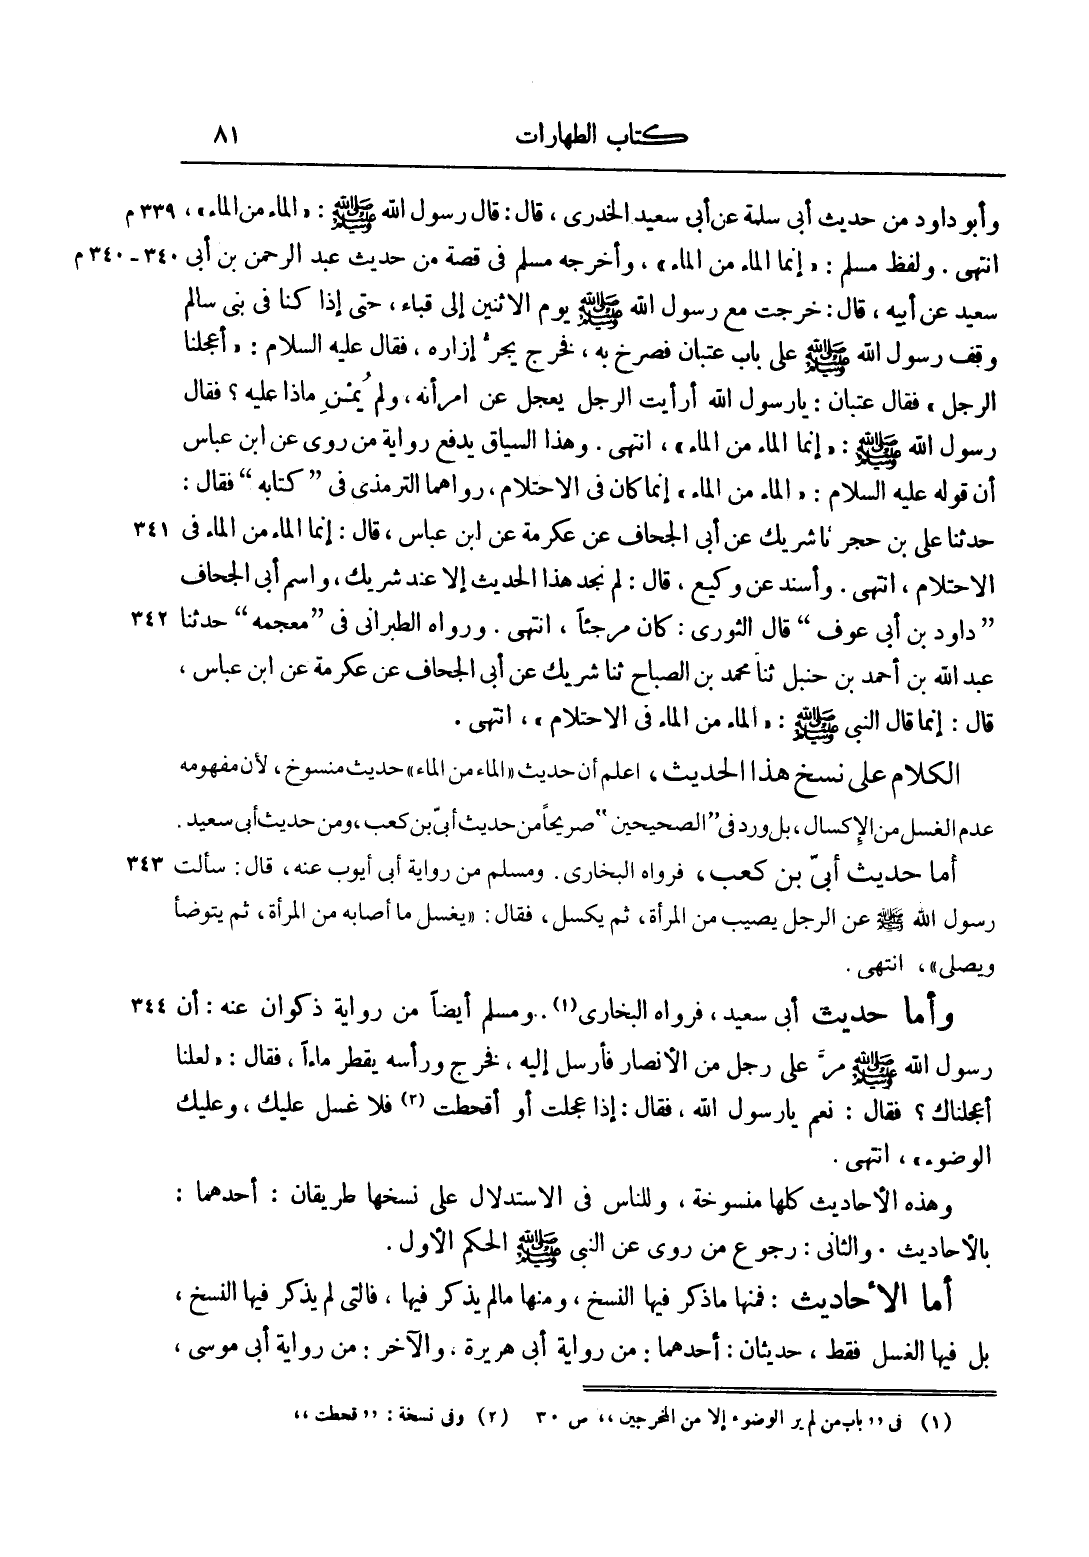 كتاب الطهارات ٨١
وأبو داود من حديث أبى سلمة عن أبى سعيد الخدرى ، قال : قال رسول الله ﷺ : «الماء من الماء» ، ٣٣٩ م
انتهى . ولفظ مسلم : «إنما الماء من الماء» ، وأخرجه مسلم فى قصة من حديث عبد الرحمن بن أبى ٣٤٠ - ٣٤٠ م
سعيد عن أبيه ، قال : خرجت مع رسول الله ﷺ يوم الاثنين إلى قباء ، حتى إذا كنا فى بنى سالم
وقف رسول الله ﷺ على باب عتبان فصرخ به ، فخرج يجرُّ إزاره ، فقال عليه السلام : «أعجلنا
الرجل» فقال عتبان : يارسول الله أرأيت الرجل يعجل عن امرأته ، ولم يُمْنِ ماذا عليه ؟ فقال
رسول الله ﷺ : «إنما الماء من الماء» ، انتهى . وهذا السياق يدفع رواية من روى عن ابن عباس
أن قوله عليه السلام : «الماء من الماء» إنما كان فى الاحتلام ، رواهما الترمذى فى ”كتابه“ فقال :
حدثنا على بن حجر ثنا شريك عن أبى الجحاف عن عكرمة عن ابن عباس ، قال : إنما الماء من الماء فى ٣٤١
الاحتلام ، انتهى . وأسند عن وكيع ، قال : لم نجد هذا الحديث إلا عند شريك ، واسم أبى الجحاف
”داود بن أبى عوف“ قال الثورى : كان مرجئاً ، انتهى . ورواه الطبرانى فى ”معجمه“ حدثنا ٣٤٢
عبد الله بن أحمد بن حنبل ثنا محمد بن الصباح ثنا شريك عن أبى الجحاف عن عكرمة عن ابن عباس ،
قال : إنما قال النبى ﷺ : «الماء من الماء فى الاحتلام» ، انتهى .
الكلام على نسخ هذا الحديث ، اعلم أن حديث «الماء من الماء» حديث منسوخ ، لأن مفهومه
عدم الغسل من الإكسال ، بل ورد فى ”الصحيحين“ صريحاً من حديث أبىّ بن كعب ، ومن حديث أبى سعيد .
أما حديث أبىّ بن كعب ، فرواه البخارى . ومسلم من رواية أبى أيوب عنه ، قال : سألت ٣٤٣
رسول الله ﷺ عن الرجل يصيب من المرأة ، ثم يكسل ، فقال : «يغسل ما أصابه من المرأة ، ثم يتوضأ
ويصلى» ، انتهى .
وأما حديث أبى سعيد ، فرواه البخارى (١) . ومسلم أيضاً من رواية ذكوان عنه : أن ٣٤٤
رسول الله ﷺ مرَّ على رجل من الأنصار فأرسل إليه ، فخرج ورأسه يقطر ماءاً ، فقال : «لعلنا
أعجلناك ؟ فقال : نعم يارسول الله ، فقال : إذا عجلت أو أقحطت (٢) فلا غسل عليك ، وعليك
الوضوء» ، انتهى .
وهذه الأحاديث كلها منسوخة ، وللناس فى الاستدلال على نسخها طريقان : أحدهما :
بالأحاديث . والثانى : رجوع من روى عن النبى ﷺ الحكم الأول .
أما الأحاديث : فمنها ماذكر فيها النسخ ، ومنها مالم يذكر فيها ، فالتى لم يذكر فيها النسخ ،
بل فيها الغسل فقط ، حديثان : أحدهما : من رواية أبى هريرة . والآخر : من رواية أبى موسى ،
(١) فى ”باب من لم ير الوضوء إلا من المخرجين“ ص ٣٠ (٢) وفى نسخة : ”قحطت“